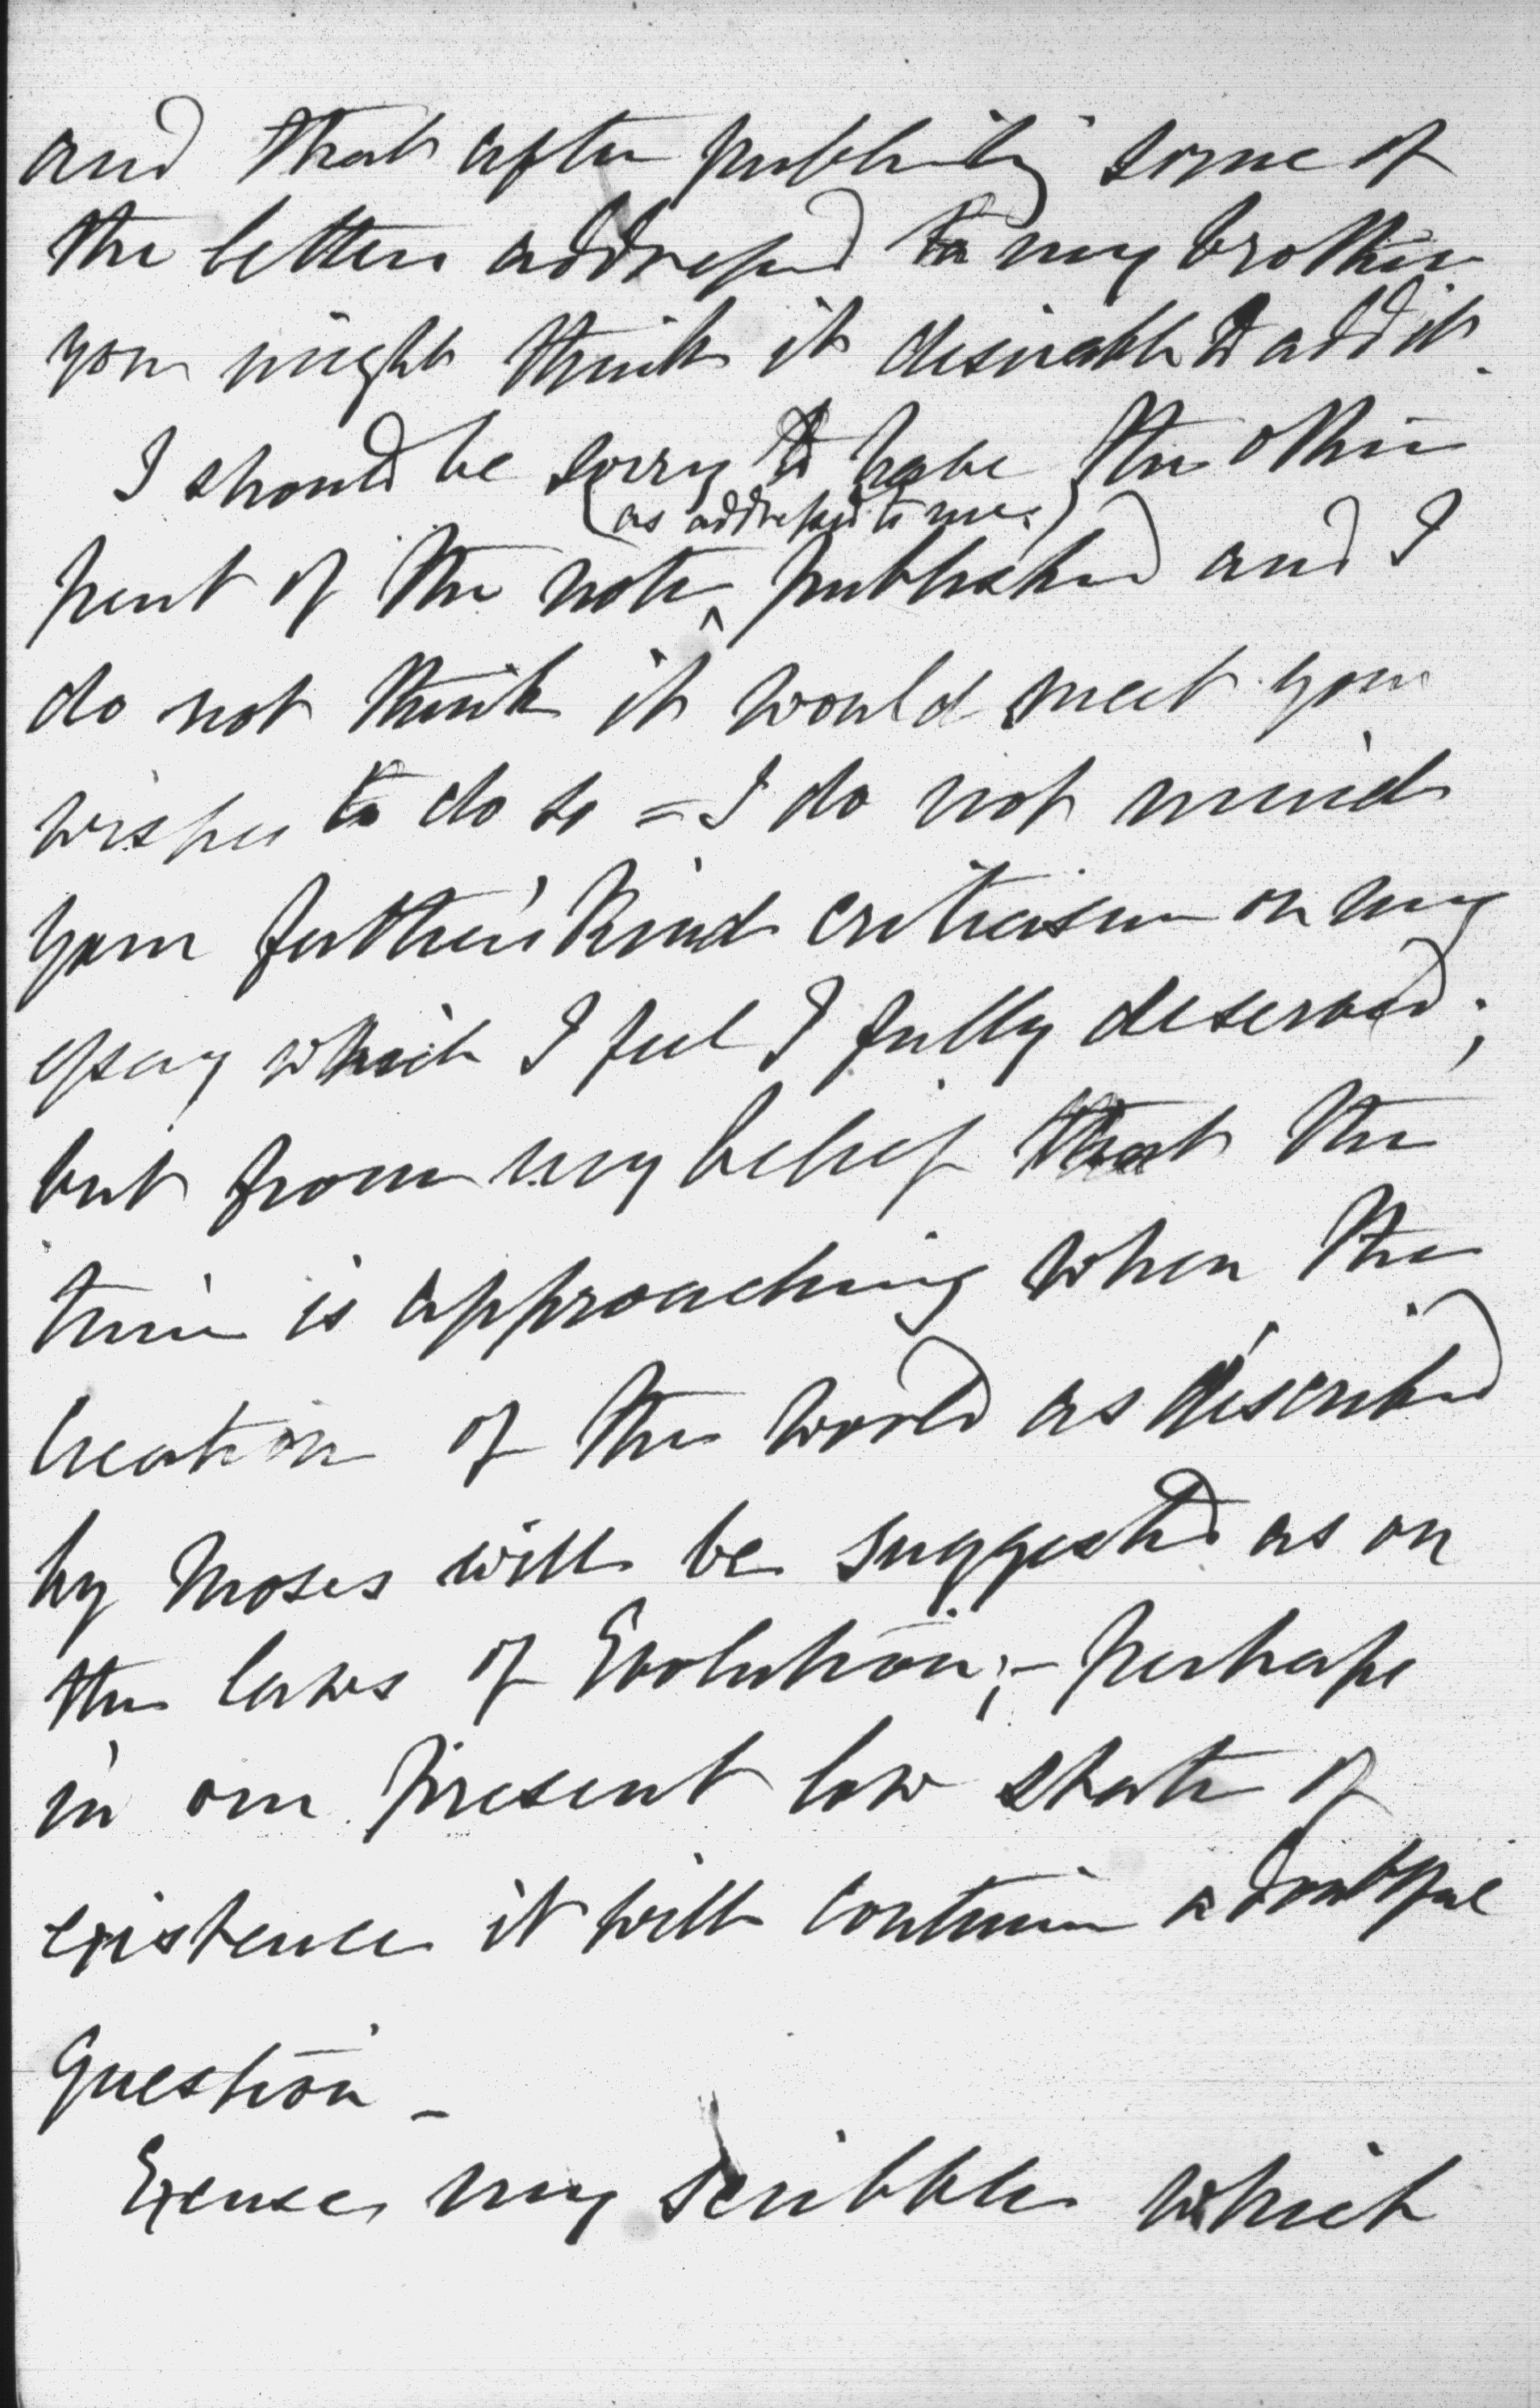 and that after publishing some of
the letters addressed to my brother
you might think it desirable to add it.
I should be sorry to have the other
(as addressed to me)
part of the note published and I
do not think it would meet your
wishes to do so = I do not mind
your father's kind criticism on my
essay which I feel I fully deserved;
but from my belief that the
time is approaching when the
Creation of the world as described
by Moses will be suggested as on
the laws of Evolution; – perhaps
in our present low state of
existence it will continue a doubtful
Question –
Excuse my scribble which